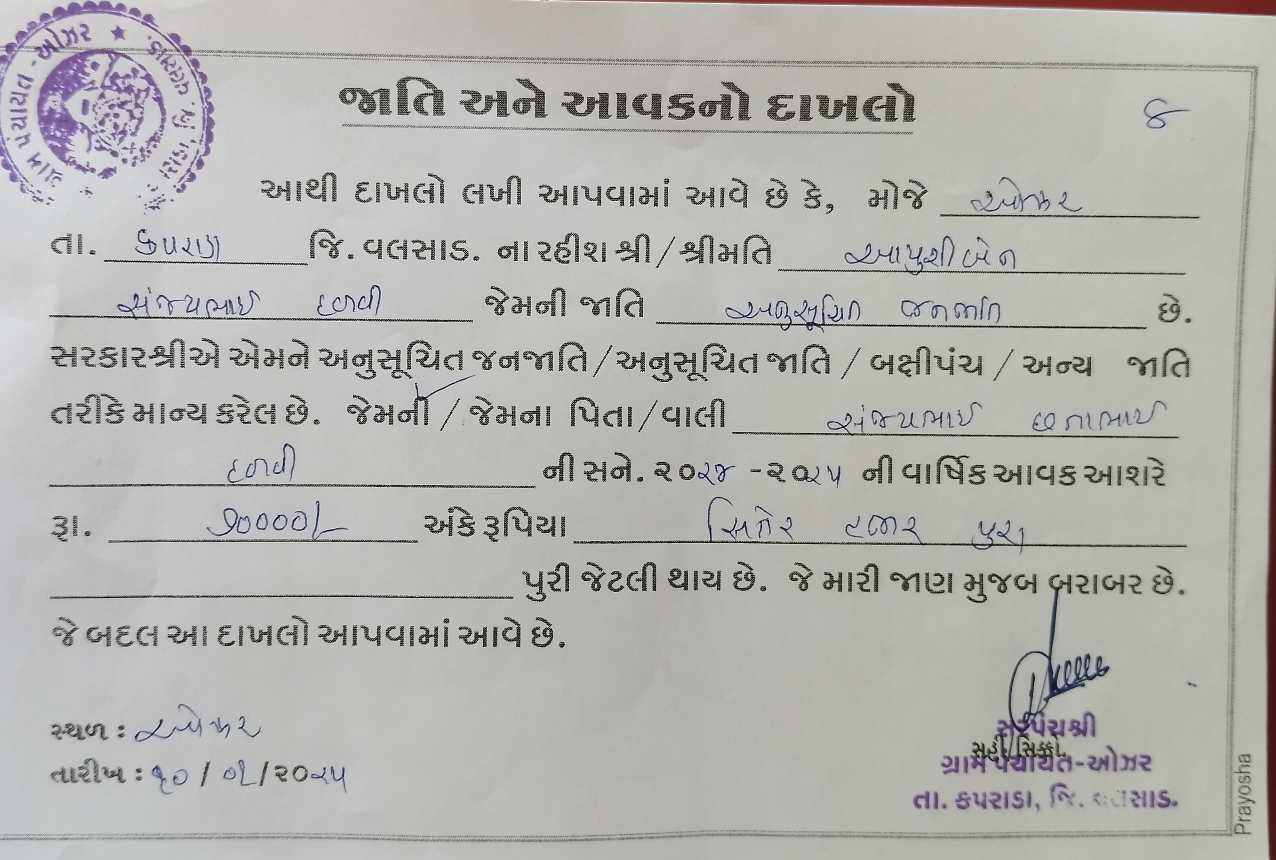 ગ્રામ પંચાયત - ઓઝર ★ જી. વલસાડ.
જાતિ અને આવકનો દાખલો
૪
આથી દાખલો લખી આપવામાં આવે છે કે, મોજે ઓઝર
તા. કપરાડા જિ. વલસાડ. ના રહીશ શ્રી / શ્રીમતિ આયુશીબેન
સંજયભાઈ દળવી જેમની જાતિ અનુસૂચિત જનજાતિ છે.
સરકારશ્રીએ એમને અનુસૂચિત જનજાતિ / અનુસૂચિત જાતિ / બક્ષીપંચ / અન્ય જાતિ
તરીકે માન્ય કરેલ છે. જેમની / જેમના પિતા / વાલી સંજયભાઈ છનાભાઈ
દળવી ની સને. ૨૦૨૪ - ૨૦૨૫ ની વાર્ષિક આવક આશરે
રૂા. ૭૦૦૦૦/- અંકે રૂપિયા સિતેર હજાર પુરા
પુરી જેટલી થાય છે. જે મારી જાણ મુજબ બરાબર છે.
જે બદલ આ દાખલો આપવામાં આવે છે.
સ્થળ : ઓઝર
તારીખ : ૧૦ / ૦૬ / ૨૦૨૫
સરપંચશ્રી
સહી/સિક્કો
ગ્રામ પંચાયત-ઓઝર
તા. કપરાડા, જિ. વલસાડ.
Prayosha